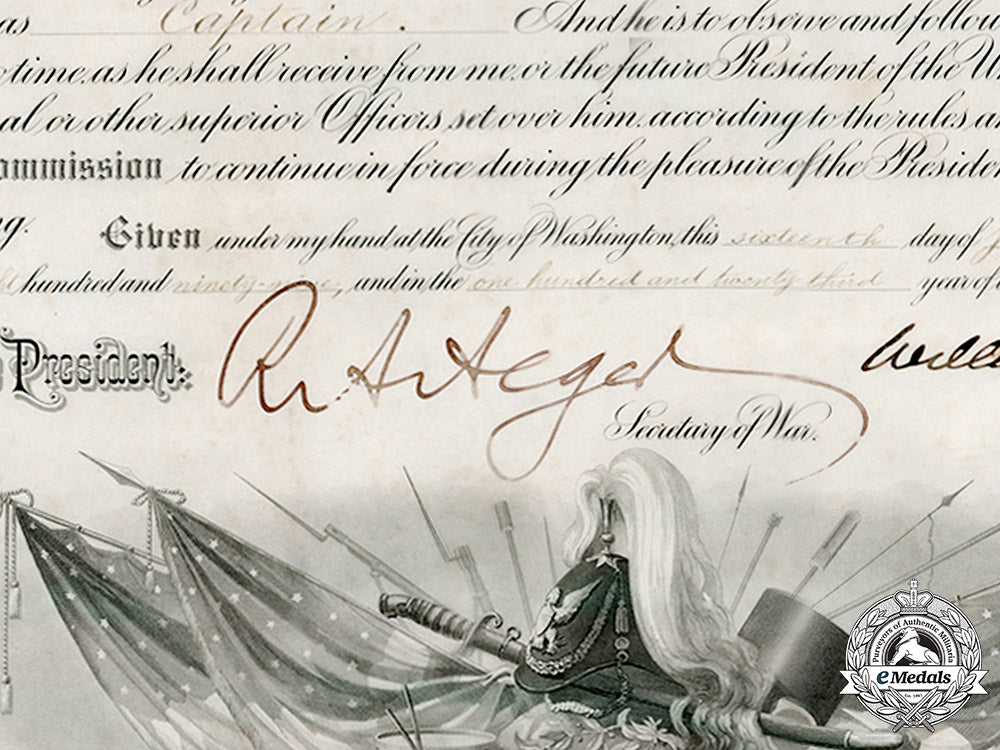 as Captain. And he is to observe and follow
time, as he shall receive from me, or the future President of the Un
al or other superior Officers set over him, according to the rules a
ommission to continue in force during the pleasure of the Presiden
ng.
Given under my hand at the City of Washington, this sixteenth day of J
hundred and ninety-nine, and in the one hundred and twenty-third year of
President:
R A Alger
Will
Secretary of War.
Purveyors of Authentic Militaria
eMedals